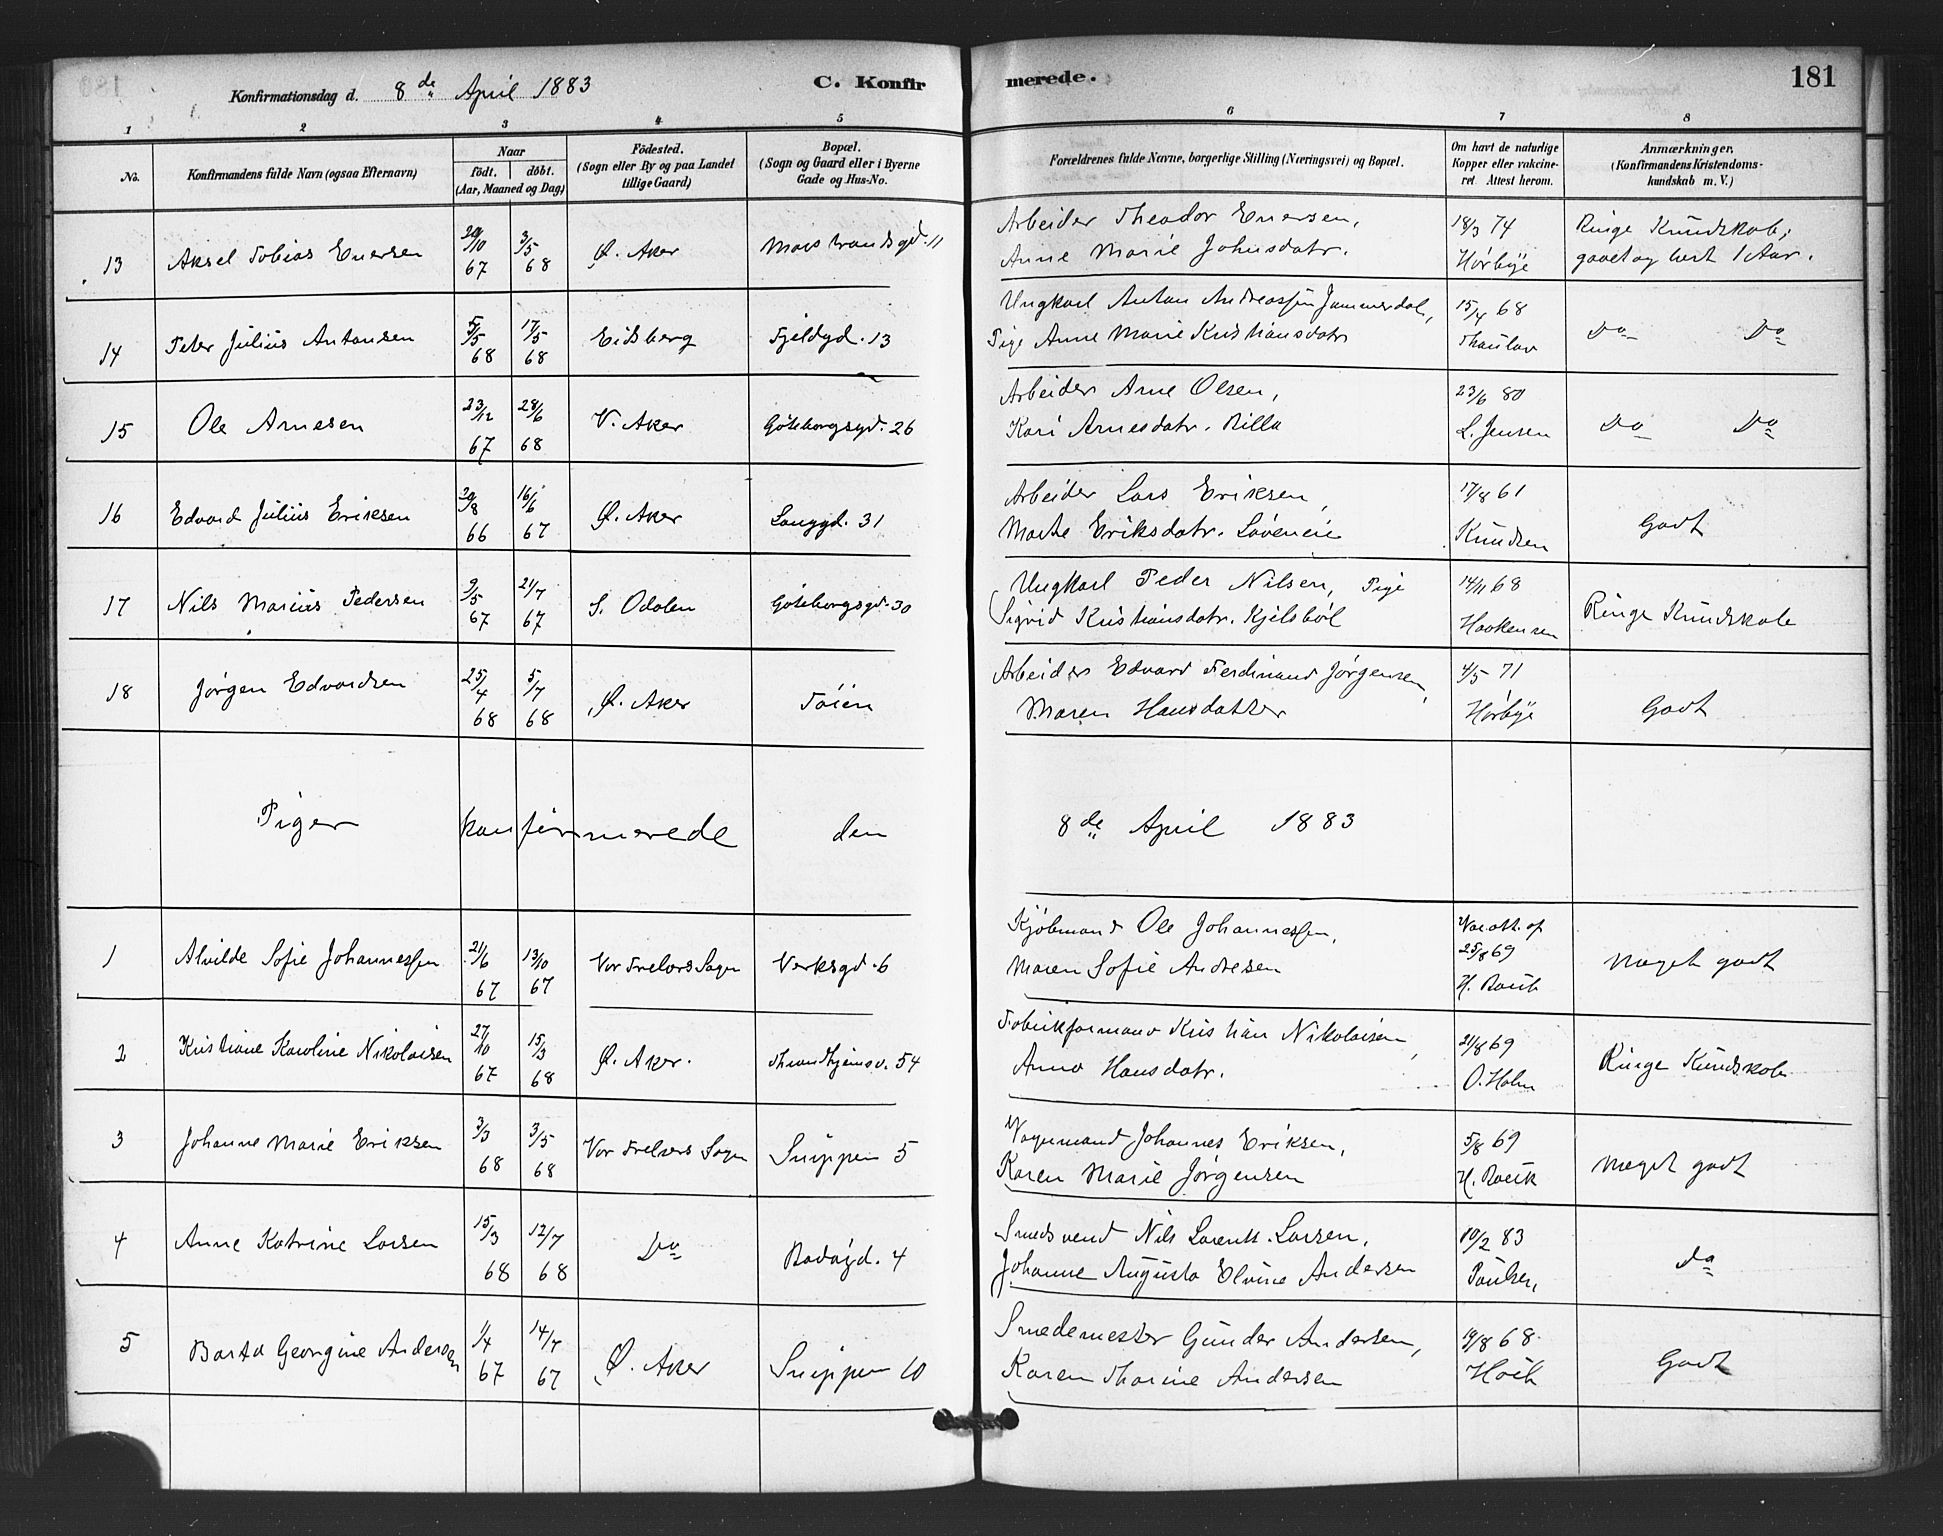 Konfirmationsdag d. 8de April 1883
C. Konfirmerede.
181
1 2 3 4 5 6 7 8
No.
Konfirmandens fulde Navn (ogsaa Efternavn)
Naar
födt. döbt.
(Aar, Maaned og Dag)
Födested.
(Sogn eller By og paa Landet
tillige Gaard)
Bopæl.
(Sogn og Gaard eller i Byerne
Gade og Hus-No.
Forældrenes fulde Navne, borgerlige Stilling (Næringsvei) og Bopæl.
Om havt de naturlige
Kopper eller vakcine-
ret Attest herom.
Anmærkninger.
(Konfirmandens Kristendoms-
kundskab m. V.)
13 Aksel Tobias Enersen 29/10 67 3/5 68 Ø. Aker Marstrandsgd. 11
Arbeider Theodor Enersen,
Anne Marie Johnsdatr.
18/3 74
Hørbye
Ringe Kundskab;
gaaet og læst 1 Aar.
14 Peter Julius Antonsen 5/5 68 17/5 68 Eidsberg Fjeldgd. 13
Ungkarl Anton Andreassen Jammerdal,
Pige Anne Marie Kristiansdatr
15/4 68
Thaulow
Do Do
15 Ole Arnesen 23/12 67 28/6 68 V. Aker Göteborgsgd. 26
Arbeider Arne Olsen,
Kari Arnesdatr. Rilla
23/6 80
L. Jensen
Do Do
16 Edvard Julius Eriksen 29/8 66 16/6 67 Ø. Aker Langgd. 31
Arbeider Lars Eriksen,
Marte Eriksdatr. Løveneie
17/8 61
Knudsen
Godt
17 Nils Marius Pedersen 9/5 67 21/7 67 S. Odalen Göteborgsgd. 30
Ungkarl Peder Nilsen, Pige
Sigrid Kristiansdatr. Kjelsböl
14/11 68
Haakensen
Ringe Kundskab
18 Jørgen Edvardsen 25/4 68 5/7 68 Ø. Aker Töien
Arbeider Edvard Ferdinand Jørgensen,
Maren Hansdatter
4/5 71
Hørbye
Godt
Piger konfirmerede den 8de April 1883
1 Alvilde Sofie Johannessen 21/6 67 13/10 67 Vor Frelsers Sogn Verksgd. 6
Kjøbmand Ole Johannessen,
Maren Sofie Andresen
Vac. att. af
25/8 69
H. Rasch
Meget godt
2 Kristiane Karoline Nikolaisen 27/10 67 15/3 68 Ø. Aker. Throndhjemsv. 54
Fabrikformand Kristian Nikolaisen,
Anna Hansdatr.
21/8 69
O. Holm
Ringe Kundskab
3 Johanne Marie Eriksen 3/3 68 3/5 68 Vor Frelsers Sogn Snippen 5
Vognmand Johannes Eriksen,
Karen Marie Jørgensen
5/8 69
H. Rasch
Meget godt
4 Anne Katrine Larsen 15/3 68 12/7 68 Do Bodøgd. 4
Smedsvend Nils Larents Larsen,
Johanne Augusta Elvine Andersen
10/2 83
Poulsen,
do
5 Barta Georgine Andersen 1/4 67 14/7 67 Ø. Aker Snippen 10
Smedemester Gunder Andersen,
Karen Thorine Andersen
19/8 68
Høch
Godt